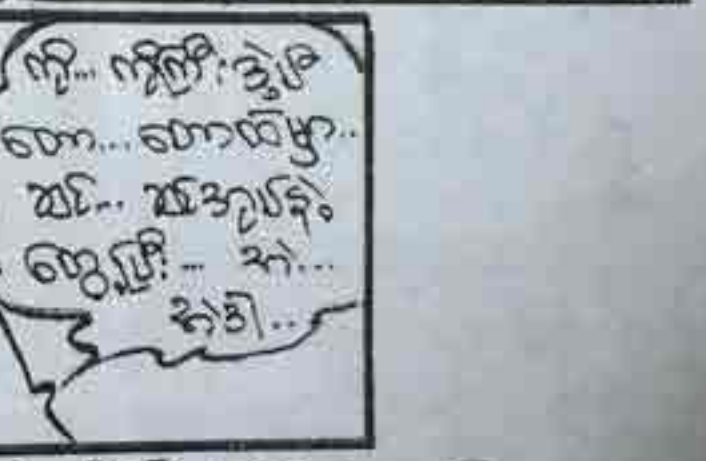 ကို... ကိုကြီး ဒွဲ့ပဲ
တော... တောထဲမှာ..
ဆင်... ဆင်အုပ်နဲ့
တွေ့ပြီး... အဲ...
အဲဒါ..